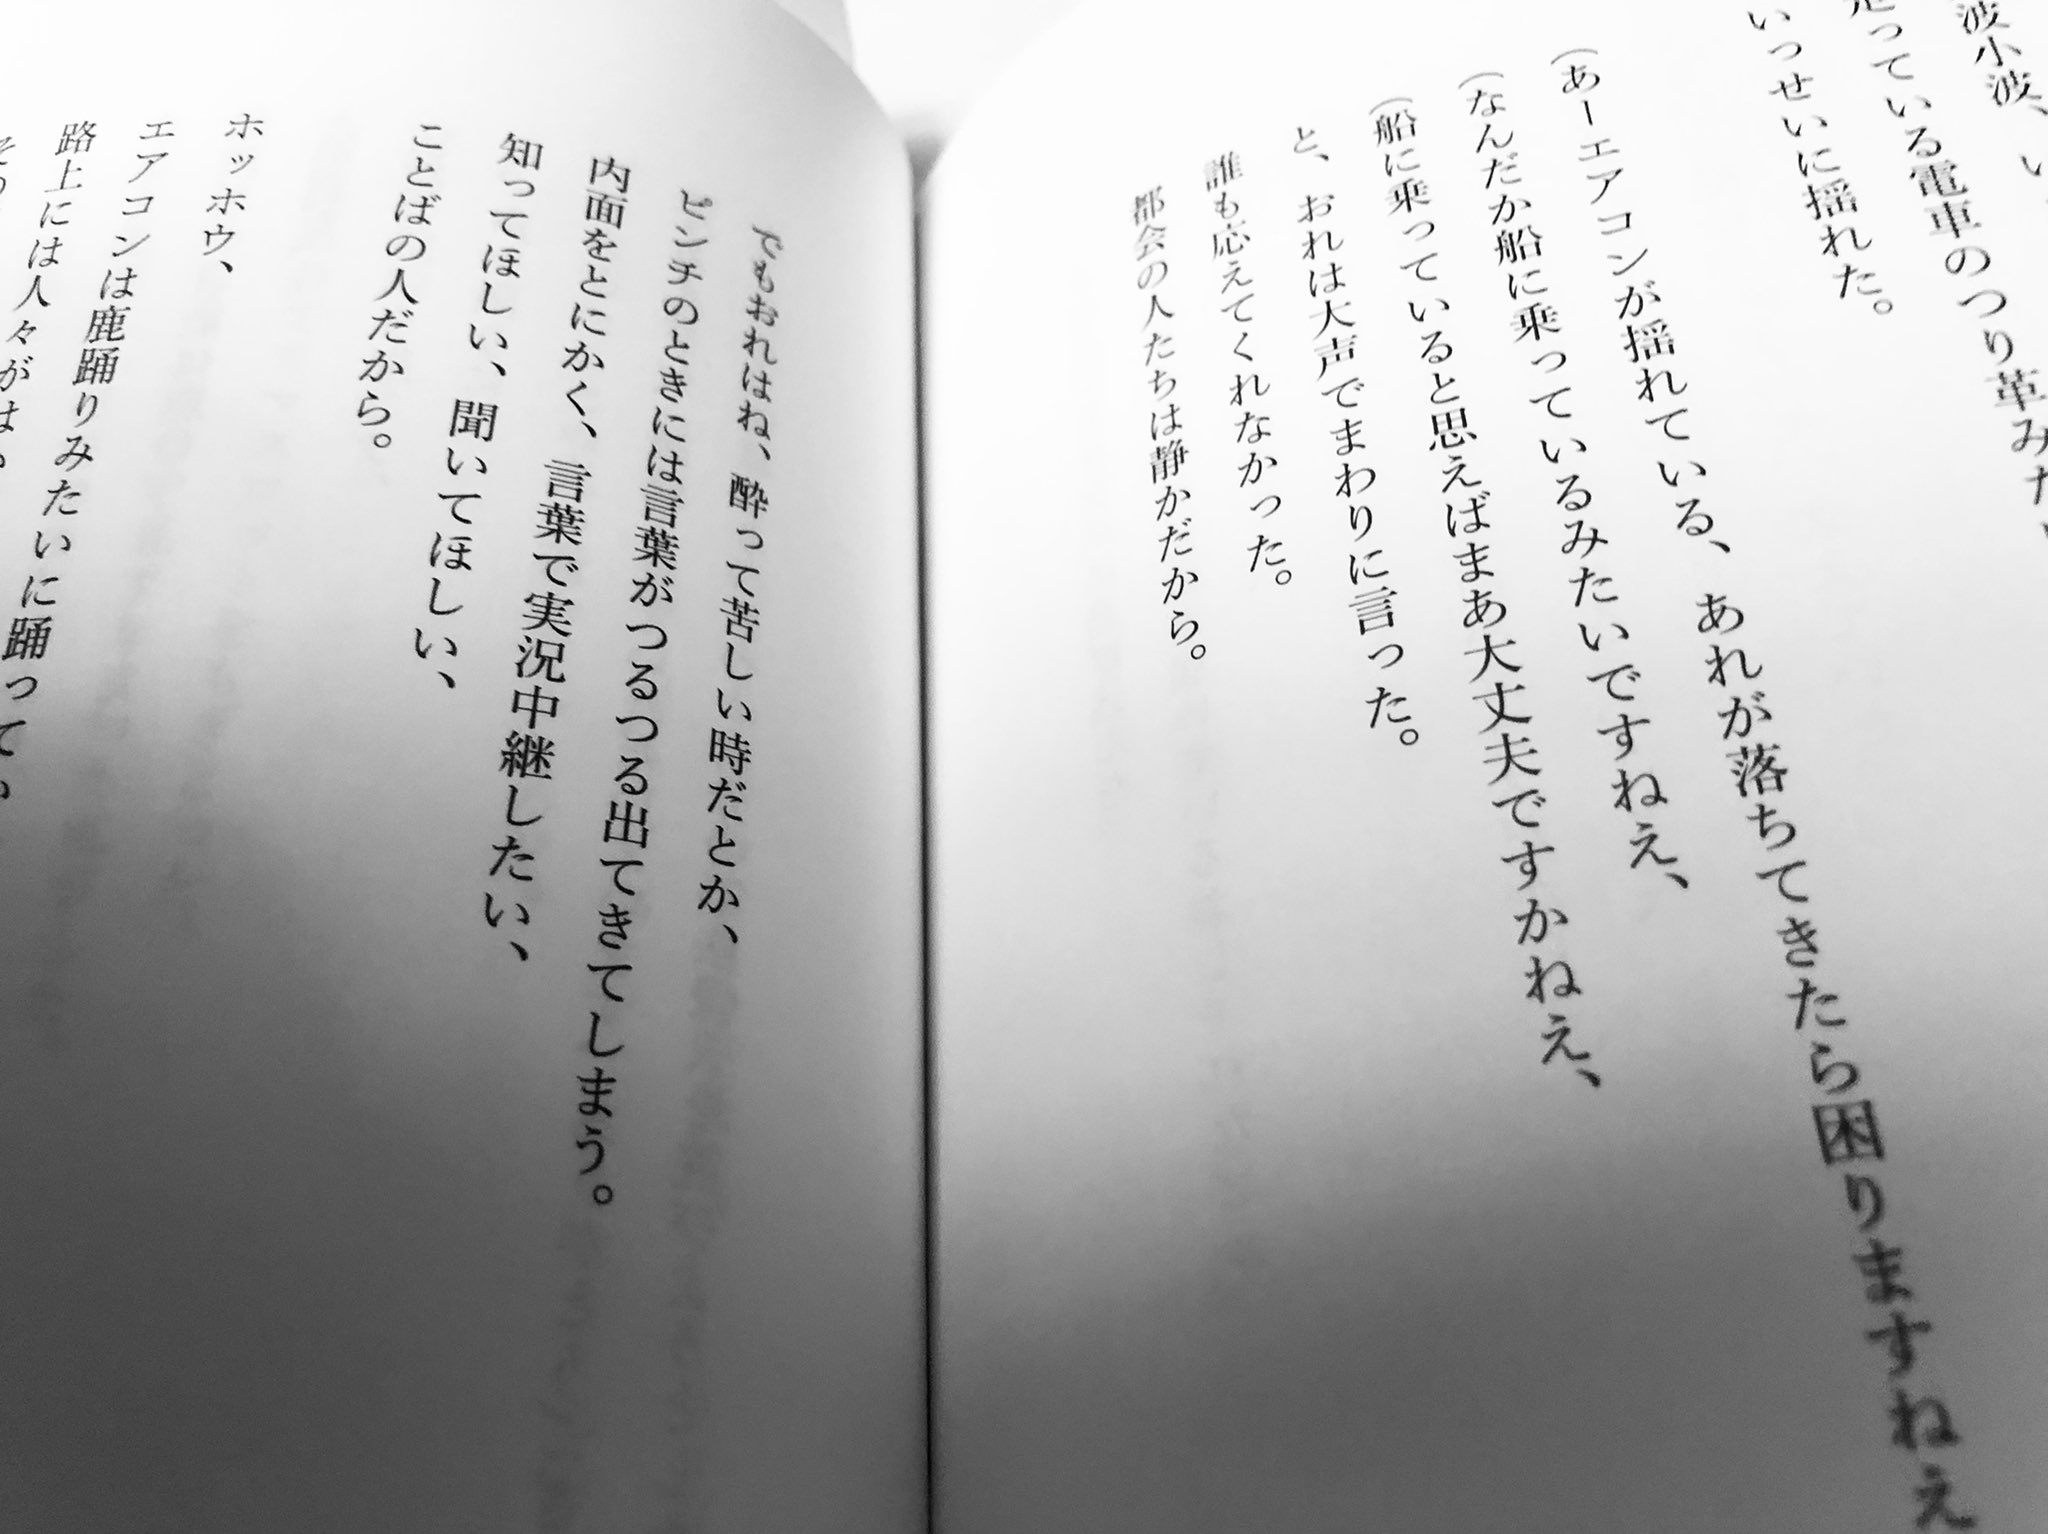 波小波、い
走っている電車のつり革みたい
いっせいに揺れた。
(あーエアコンが揺れている、あれが落ちてきたら困りますねえ
(なんだか船に乗っているみたいですねえ、
(船に乗っていると思えばまあ大丈夫ですかねえ、
と、おれは大声でまわりに言った。
誰も応えてくれなかった。
都会の人たちは静かだから。
でもおれはね、酔って苦しい時だとか、
ピンチのときには言葉がつるつる出てきてしまう。
内面をとにかく、言葉で実況中継したい、
知ってほしい、聞いてほしい、
ことばの人だから。
ホッホウ、
エアコンは鹿踊りみたいに踊ってい
路上には人々がはい